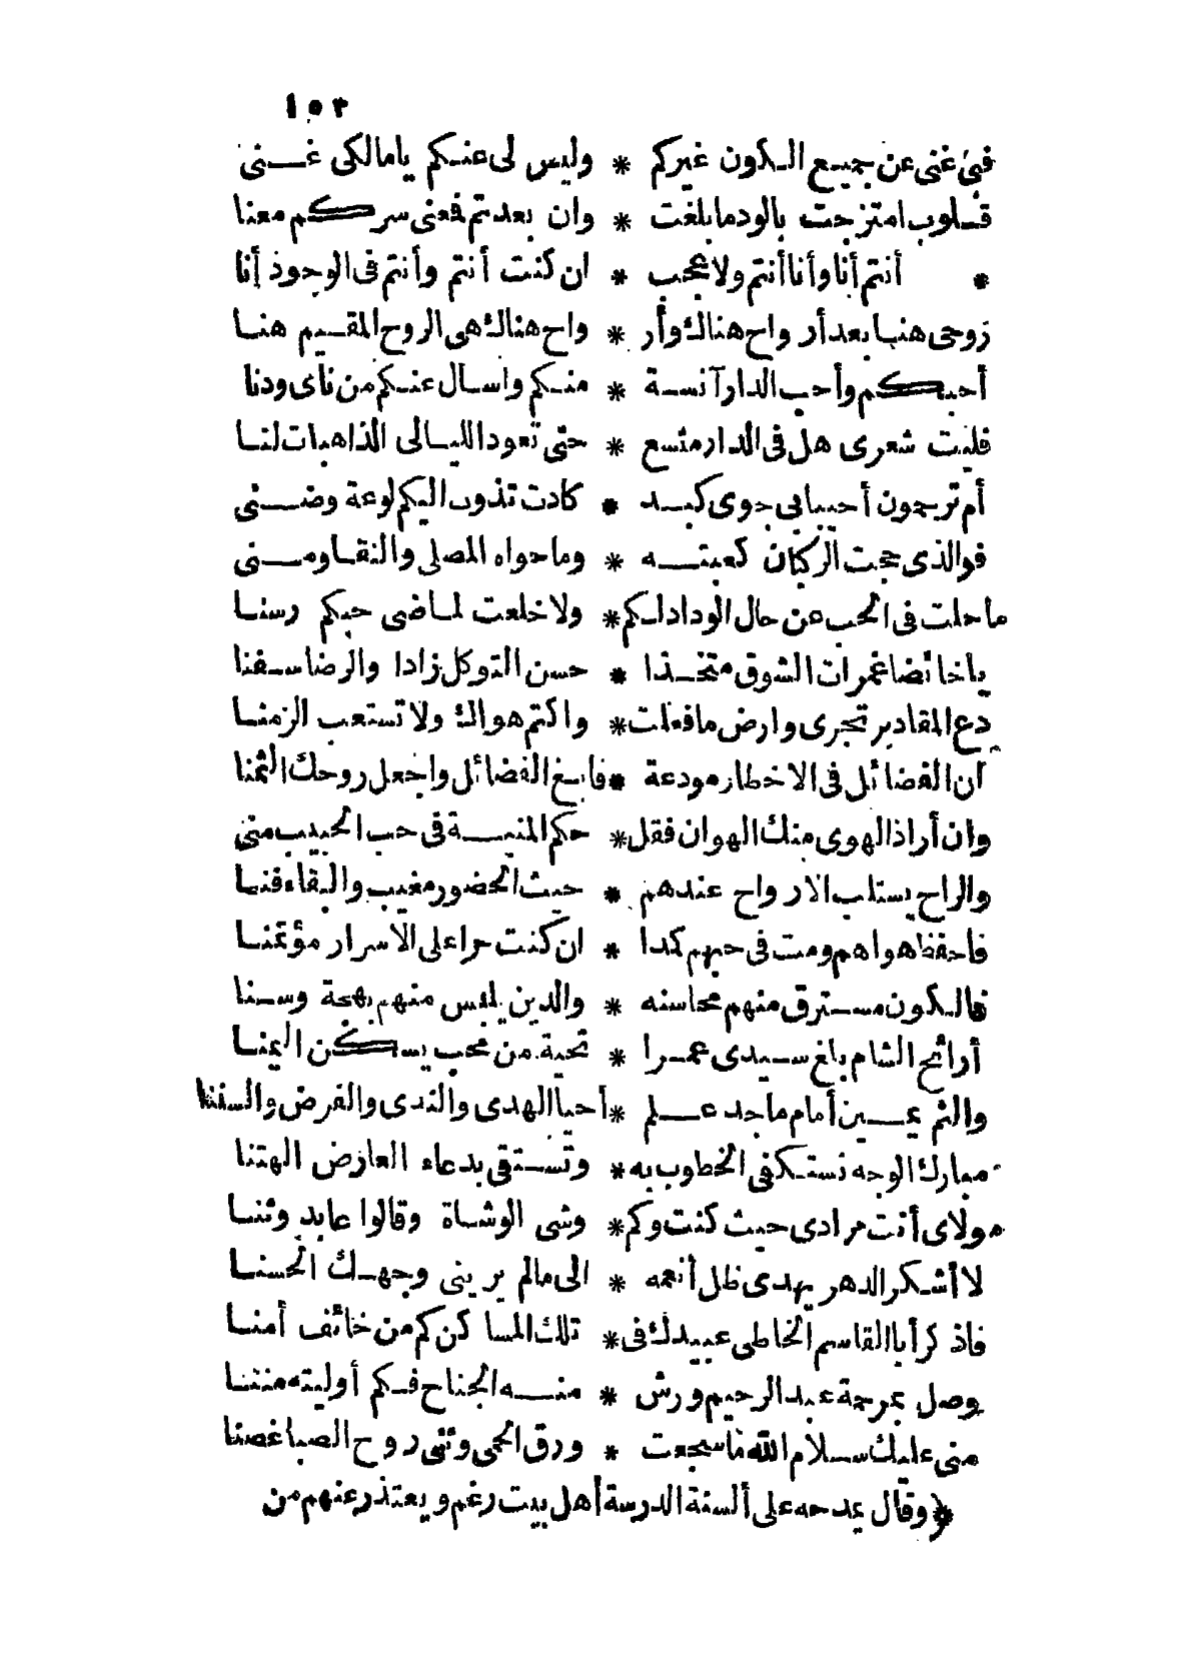 ١٥٣
فبي غنى عن جميع الكون غيركم * وليس لى عنكم يامالكى غنى
قلوب امتزجت بالود مابلغت * وان بعدتم فعنى سركم معنا
* أنتم أنا وأنا أنتم ولا عجب * ان كنت أنتم وأنتم فى الوجود أنا
روحى هنا بعد أرواح هناك وأر * واح هناك هى الروح المقيم هنا
أحبكم وأحب الدار آنسة * منكم واسأل عنكم من ناى ودنا
فليت شعرى هل فى الدار متسع * حتى تعود الليالى الذاهبات لنا
أم ترجون أحبابى جوى كبد * كادت تذوب اليكم لوعة وضنى
فوالذى حجت الركبان كعبته * وما حواه المصلى والنقا ومنى
ما حلت فى الحب عن حال الوداد لكم * ولا خلعت لماضى حبكم رسنا
يا خائضا غمرات الشوق متخذا * حسن التوكل زادا والرضا سفنا
دع المقادير تجرى وارض مافعلت * واكتم هواك ولا تستعب الزمنا
ان الفضائل فى الاخطار مودعة * فابغ الفضائل واجعل روحك الثمنا
وان أراد الهوى منك الهوان فقل * حكم المنية فى حب الحبيب منى
والراح يستلب الارواح عندهم * حيث الحضور مغيب والبقاء فنا
فاحفظ هواهم ومت فى حبهم كمدا * ان كنت حرا على الاسرار مؤتمنا
فالكون مسترق منهم محاسنه * والدين يلبس منهم بهجة وسنا
أرائح الشام بلغ سيدى عمرا * تحية من محب يسكن اليمنا
والثم يمين أمام ماجد علم * أحيا الهدى والندى والفرض والسننا
مبارك الوجه نستكفى الخطوب به * وتستقى بدعاء العارض الهتنا
مولاى أنت مرادى حيث كنت وكم * وشى الوشاة وقالوا عابد وثنا
لا أشكر الدهر يهدى ظل أنعمه * الى مالم يرينى وجهك الحسنا
فاذكر أبا القاسم الخاطى عبيدك فى * تلك المساكن كم من خائف أمنا
وصل بمرحمة عبد الرحيم ورش * منه الجناح فكم أوليته مننا
منى عليك سلام الله ما سجعت * ورق الحمى وثنى روح الصبا غصنا
﴿وقال يمدحه على ألسنة الدرسة أهل بيت رغم ويعتذر عنهم من